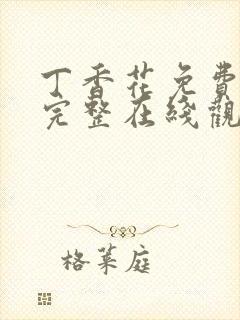 丁香花免費
完整在綫觀
格菜庭